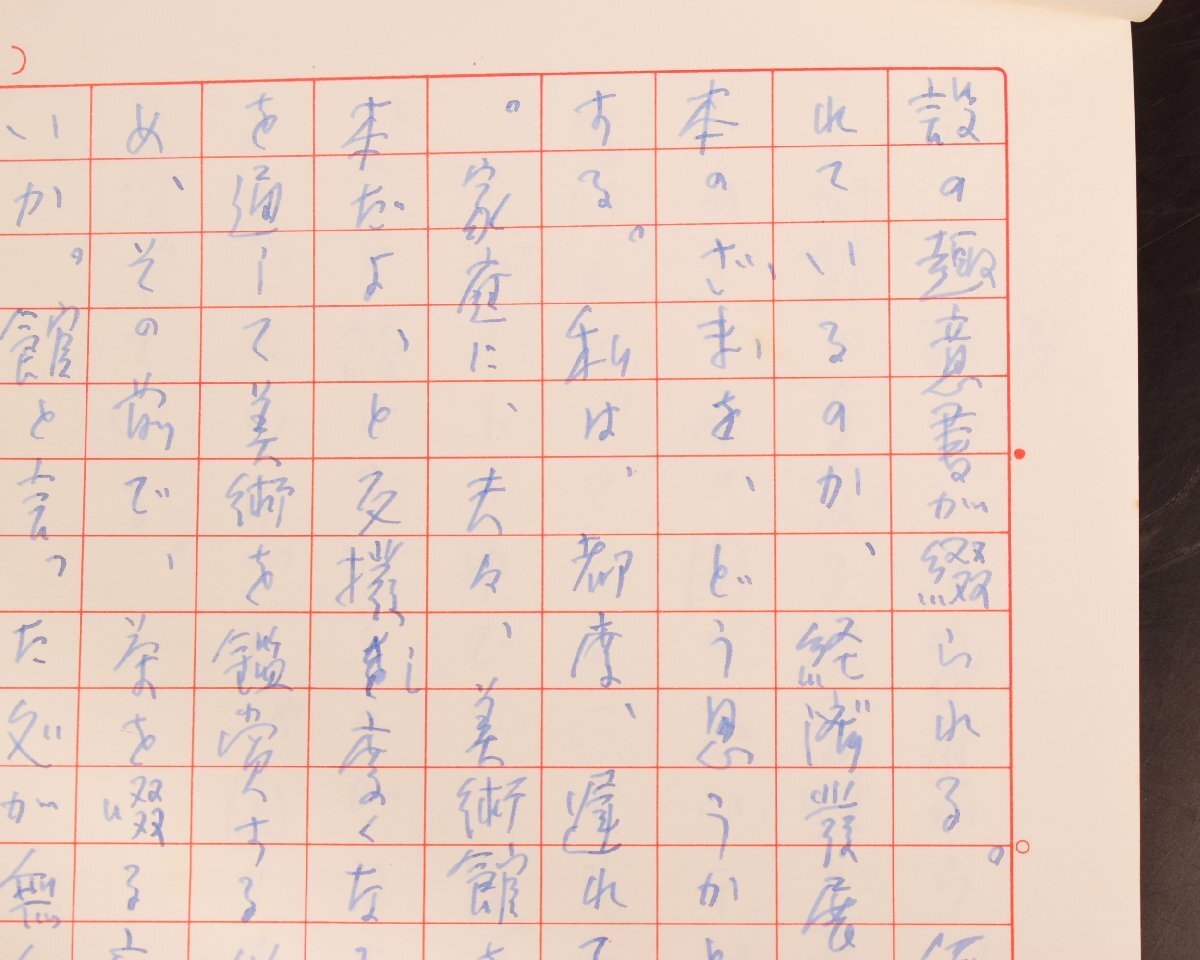 設の趣意書が綴られる。
れているのが、経済發展
本のざいまを、どう思うかと
する。私は、都度、遅れて
。家庭に、夫々、美術館を
本だよ、と反撥し度くな
を通して美術を鑑賞する
め、その前で、茶を啜る
いか。館と言った処が無